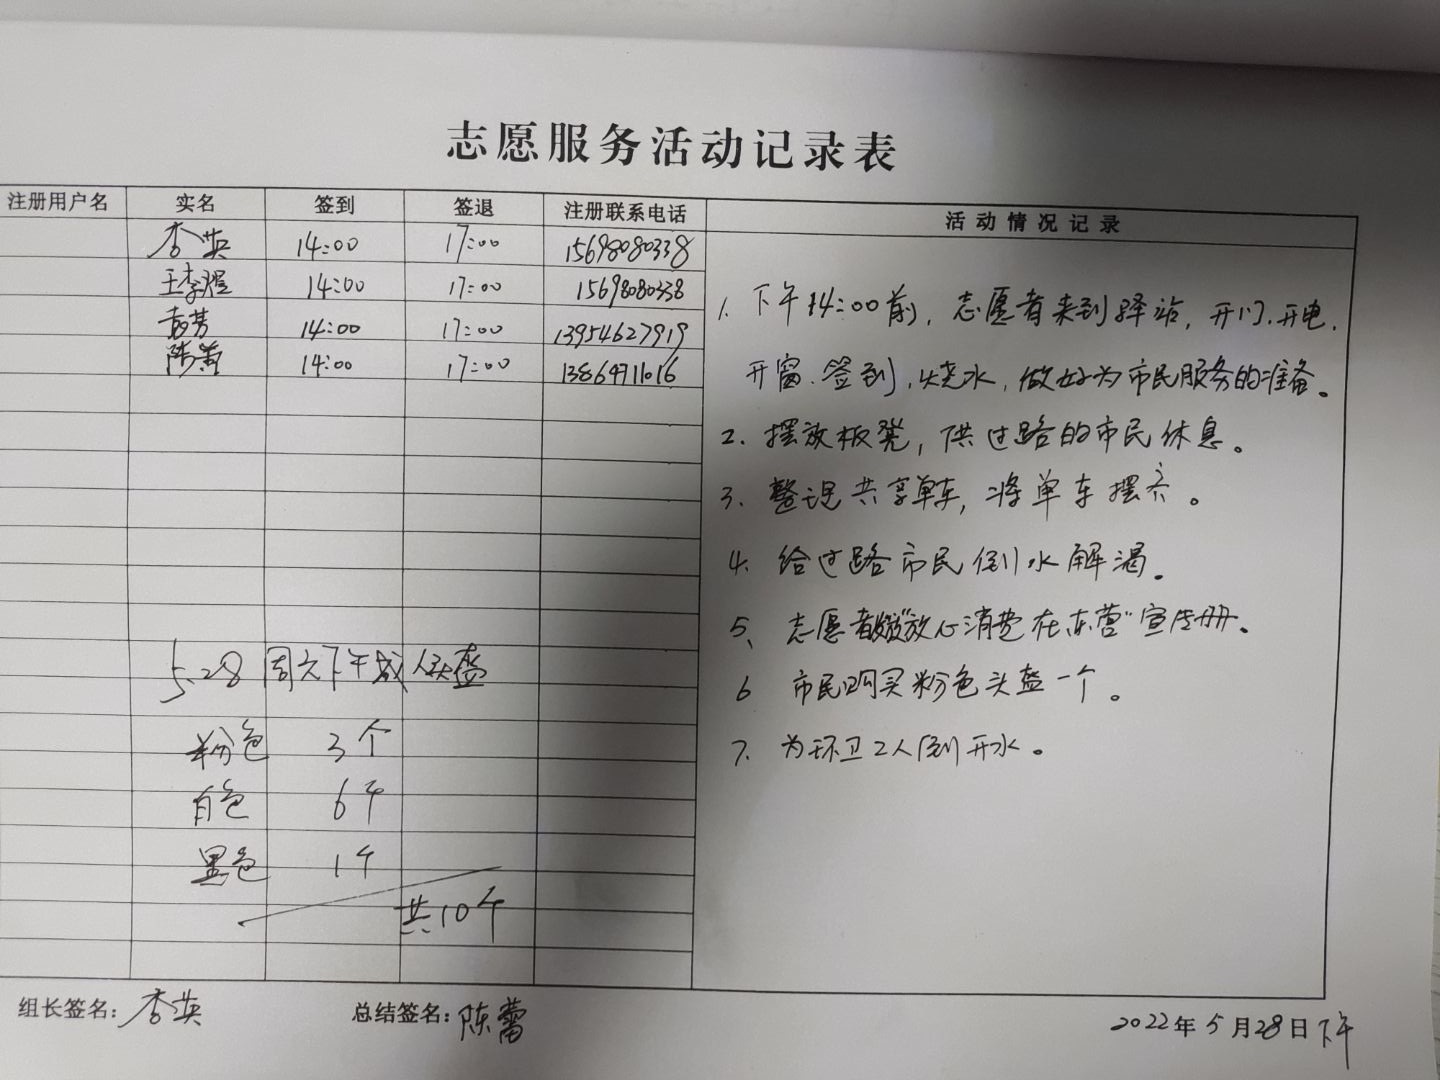 志愿服务活动记录表
注册用户名 实名 签到 签退 注册联系电话 活动情况记录
李英 14:00 17:00 15698080338
王李煜 14:00 17:00 15698080338
袁芳 14:00 17:00 13954627919
陈蕾 14:00 17:00 13864711016
1. 下午14:00前，志愿者来到驿站，开门.开电.
开窗.签到，烧水，做好为市民服务的准备。
2. 摆放板凳，供过路的市民休息。
3. 整理共享单车，将单车摆齐。
4. 给过路市民倒水解渴。
5、志愿者发放"放心消费在东营"宣传册。
6 市民购买粉色头盔一个。
7. 为环卫工人倒开水。
5.28 周六下午成人头盔
粉色 3个
白色 6个
黑色 1个
共10个
组长签名：李英 总结签名：陈蕾 2022年5月28日下午